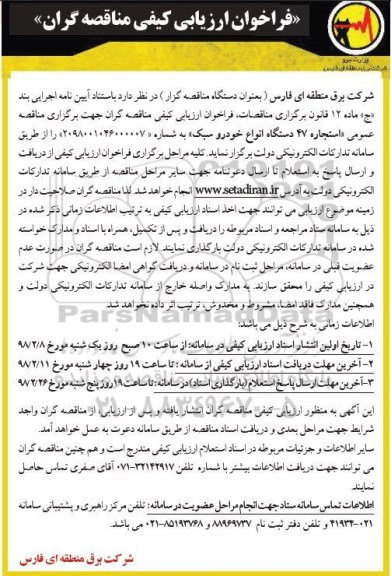 «فراخوان ارزیابی کیفی مناقصه گران»
وزارت نیرو
شرکت برق منطقه ای فارس
شرکت برق منطقه ای فارس ( بعنوان دستگاه مناقصه گزار ) در نظر دارد باستناد آیین نامه اجرایی بند
«ج» ماده ۱۲ قانون برگزاری مناقصات، فراخوان ارزیابی کیفی مناقصه گران جهت برگزاری مناقصه
عمومی «استجاره ۴۷ دستگاه انواع خودرو سبک» به شماره « ۲۰۹۸۰۰۱۰۴۶۰۰۰۰۰۷ » را از طریق
سامانه تدارکات الکترونیکی دولت برگزار نماید. کلیه مراحل برگزاری فراخوان ارزیابی کیفی از دریافت
و ارسال پاسخ به استعلام تا ارسال دعوتنامه جهت سایر مراحل مناقصه از طریق سامانه تدارکات
الکترونیکی دولت به آدرس www.setadiran.ir انجام خواهد شد. لذا مناقصه گران صلاحیت دار در
زمینه موضوع ارزیابی می توانند جهت اخذ اسناد ارزیابی کیفی به ترتیب اطلاعات زمانی ذکر شده در
ذیل به سامانه ستاد مراجعه و اسناد مربوطه را دریافت و پس از تکمیل، همراه با اسناد و مدارک خواسته
شده در سامانه تدارکات الکترونیکی دولت بارگذاری نمایند. لازم است مناقصه گران در صورت عدم
عضویت قبلی در سامانه، مراحل ثبت نام در سامانه و دریافت گواهی امضا الکترونیکی جهت شرکت
در ارزیابی کیفی را محقق سازند. به مدارک واصله خارج از سامانه تدارکات الکترونیکی دولت و
همچنین مدارک فاقد امضا، مشروط و مخدوش، ترتیب اثر داده نخواهد شد.
اطلاعات زمانی به شرح ذیل می باشد:
۱- تاریخ اولین انتشار اسناد ارزیابی کیفی در سامانه: از ساعت ۱۰ صبح روز یک شنبه مورخ ۹۸/۲/۸
۲- آخرین مهلت دریافت اسناد ارزیابی کیفی از سامانه : تا ساعت ۱۹ روز چهار شنبه مورخ ۹۸/۲/۱۱
۳- آخرین مهلت ارسال پاسخ استعلام (بارگذاری اسناد) در سامانه: تا ساعت ۱۹ روز پنج شنبه مورخ ۹۸/۲/۲۶
این آگهی به منظور ارزیابی کیفی مناقصه گران انتشار یافته و پس از ارزیابی، از مناقصه گران واجد
شرایط جهت مراحل بعدی و دریافت اسناد مناقصه از طریق سامانه دعوت به عمل خواهد آمد.
سایر اطلاعات و جزئیات مربوطه در اسناد استعلام ارزیابی کیفی مندرج است و هم چنین مناقصه گران
می توانند جهت دریافت اطلاعات بیشتر با شماره تلفن ۳۲۱۴۲۹۱۷-۰۷۱ آقای صفری تماس حاصل
نمایند.
اطلاعات تماس سامانه ستاد جهت انجام مراحل عضویت در سامانه: تلفن مرکز راهبری و پشتیبانی سامانه
۰۲۱-۴۱۹۳۴ و تلفن دفتر ثبت نام ۸۸۹۶۹۷۳۷ و ۸۵۱۹۳۷۶۸-۰۲۱ می باشد.
شرکت برق منطقه ای فارس
ParsNamadData
۰۲۱-۸۸۳۴۹۶۷۰-۵